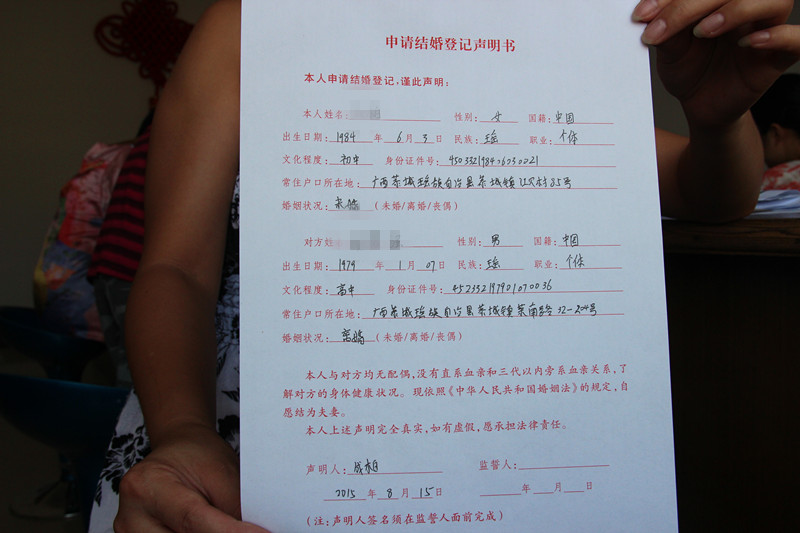 申请结婚登记声明书
本人申请结婚登记,谨此声明:
本人姓名: 性别: 女 国籍: 中国
出生日期: 1984 年 6 月 3 日 民族: 瑶 职业: 个体
文化程度: 初中 身份证件号: 450332198406030021
常住户口所在地: 广西恭城瑶族自治县恭城镇 村85号
婚姻状况: (未婚/离婚/丧偶)
对方姓 性别: 男 国籍: 中国
出生日期: 1979 年 1 月 07 日 民族: 瑶 职业: 个体
文化程度: 高中 身份证件号: 452332197901070036
常住户口所在地: 广西恭城瑶族自治县恭城镇 南路32-204号
婚姻状况: 离婚 (未婚/离婚/丧偶)
本人与对方均无配偶,没有直系血亲和三代以内旁系血亲关系,了
解对方的身体健康状况。现依照《中华人民共和国婚姻法》的规定,自
愿结为夫妻。
本人上述声明完全真实,如有虚假,愿承担法律责任。
声明人: 监誓人:
2015 年 8 月 15 日 年 月 日
(注:声明人签名须在监誓人面前完成)